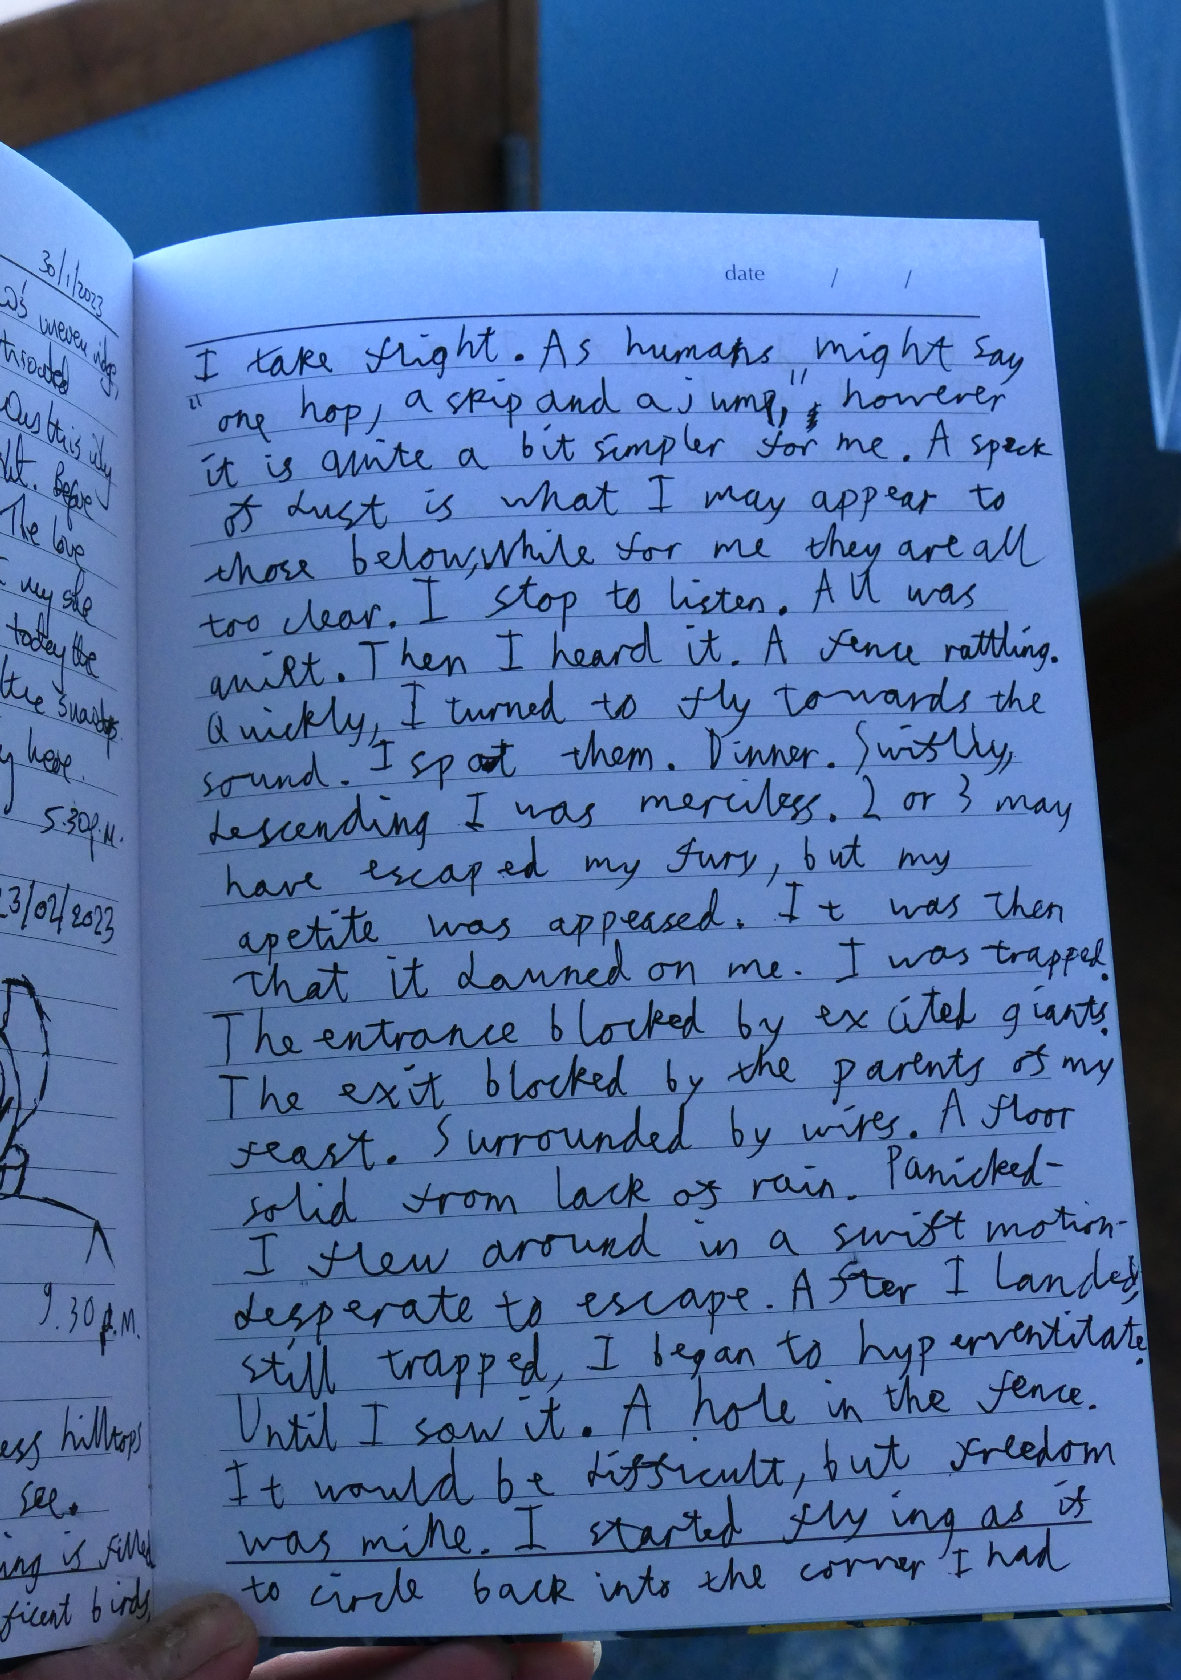 30/1/2023
uneven
shrouded
Before
The love
my she
today the
the
here.
5.30p.M.
23/02/2023
9.30p.M.
hilltops
see.
ing is filled
ficent birds
date / /
I take flight. As humans might say
"one hop, a skip and a jump," however
it is quite a bit simpler for me. A speck
of dust is what I may appear to
those below, while for me they are all
too clear. I stop to listen. All was
quiet. Then I heard it. A fence rattling.
Quickly, I turned to fly towards the
sound. I spot them. Dinner. Swiftly,
descending I was merciless. 2 or 3 may
have escaped my fury, but my
apetite was appeased. It was then
that it dawned on me. I was trapped.
The entrance blocked by excited giants.
The exit blocked by the parents of my
feast. Surrounded by wires. A floor
solid from lack of rain. Panicked-
I flew around in a swift motion-
desperate to escape. After I landed,
still trapped, I began to hyperventitate.
Until I saw it. A hole in the fence.
It would be difficult, but freedom
was mine. I started flying as if
to circle back into the corner I had